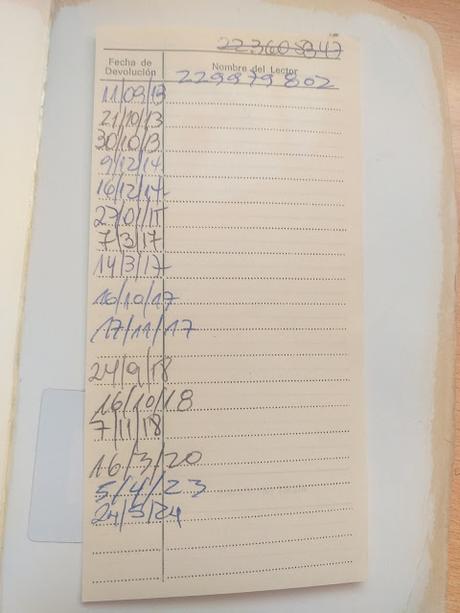 223605347
Fecha de Devolución Nombre del Lector
229979802
11/09/13
21/10/13
30/10/13
9/12/14
16/12/14
27/01/15
7/3/17
14/3/17
16/10/17
17/11/17
24/9/18
16/10/18
7/11/18
16/3/20
5/4/23
24/5/24